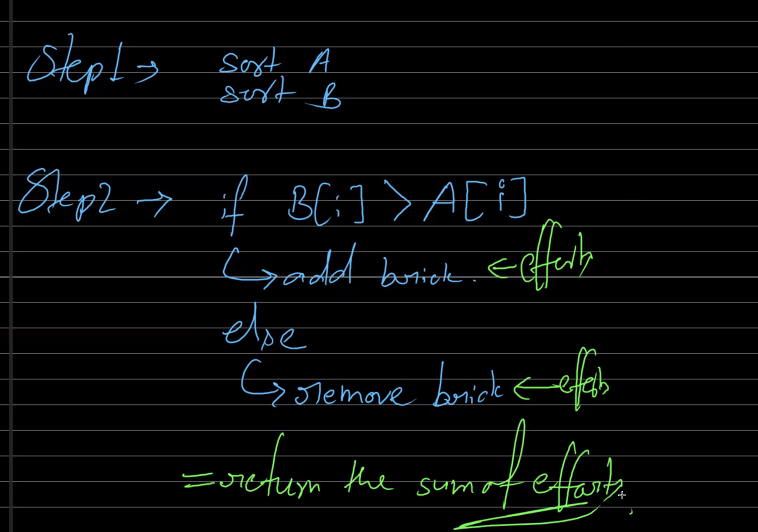 Step1 → sort A
sort B
Step2 → if B[i] > A[i]
↳ add brick. ← efforts
else
↳ remove brick ← efforts
= return the sum of efforts.